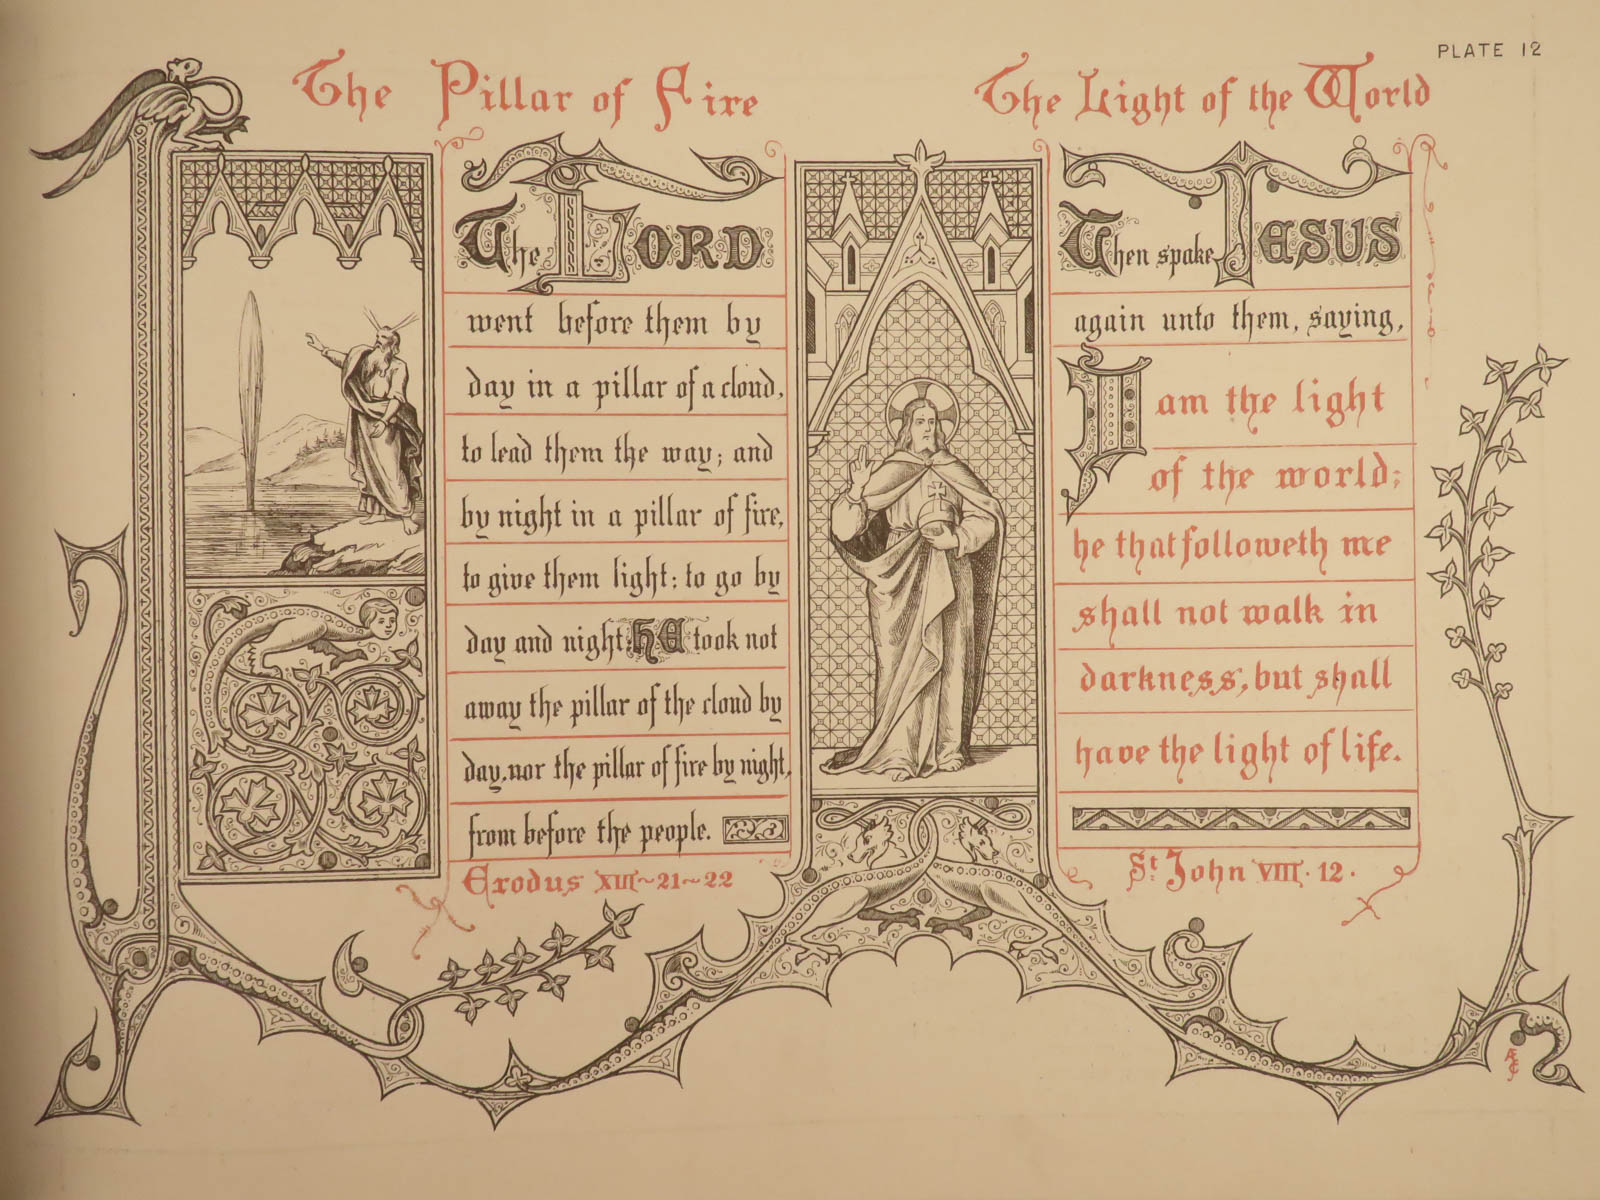 PLATE 12
The Pillar of Fire
The LORD
went before them by
day in a pillar of a cloud,
to lead them the way; and
by night in a pillar of fire,
to give them light; to go by
day and night: HE took not
away the pillar of the cloud by
day, nor the pillar of fire by night,
from before the people.
Exodus XIII~21~22
The Light of the World
Then spake JESUS
again unto them, saying,
I am the light
of the world:
he that followeth me
shall not walk in
darkness, but shall
have the light of life.
St. John VIII. 12.